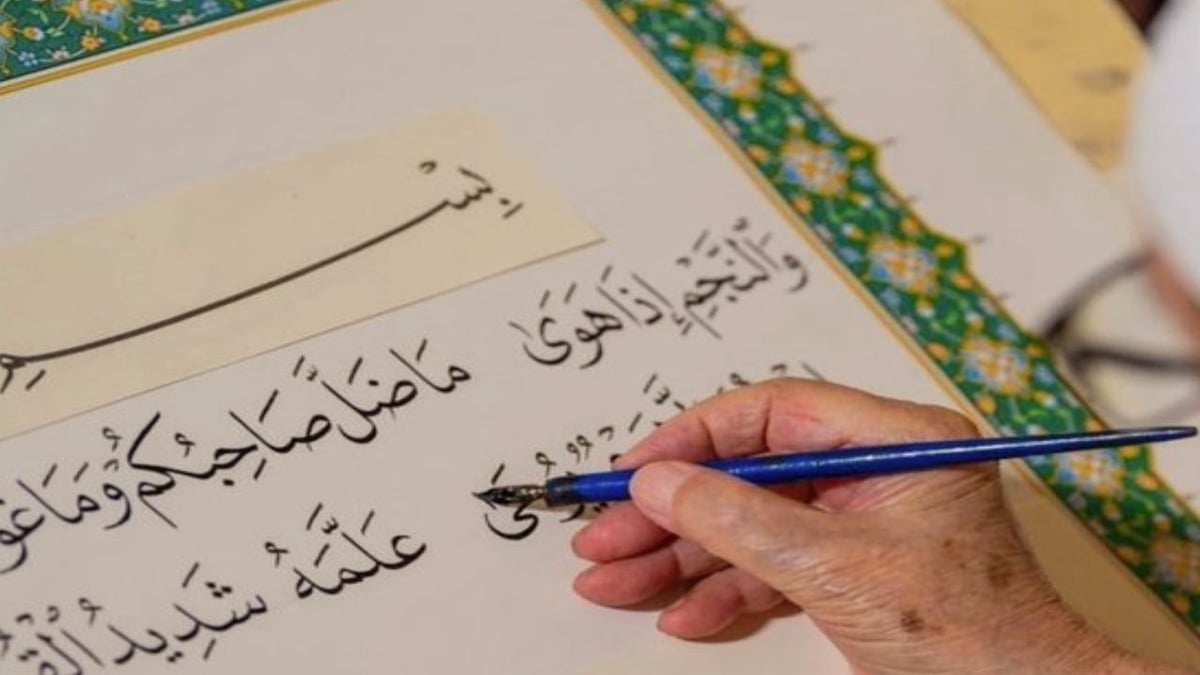 بِسْمِ
وَالنَّجْمِ إِذَا هَوَىٰ مَا ضَلَّ صَاحِبُكُمْ وَمَا
يُوحَىٰ عَلَّمَهُ شَدِيدُ